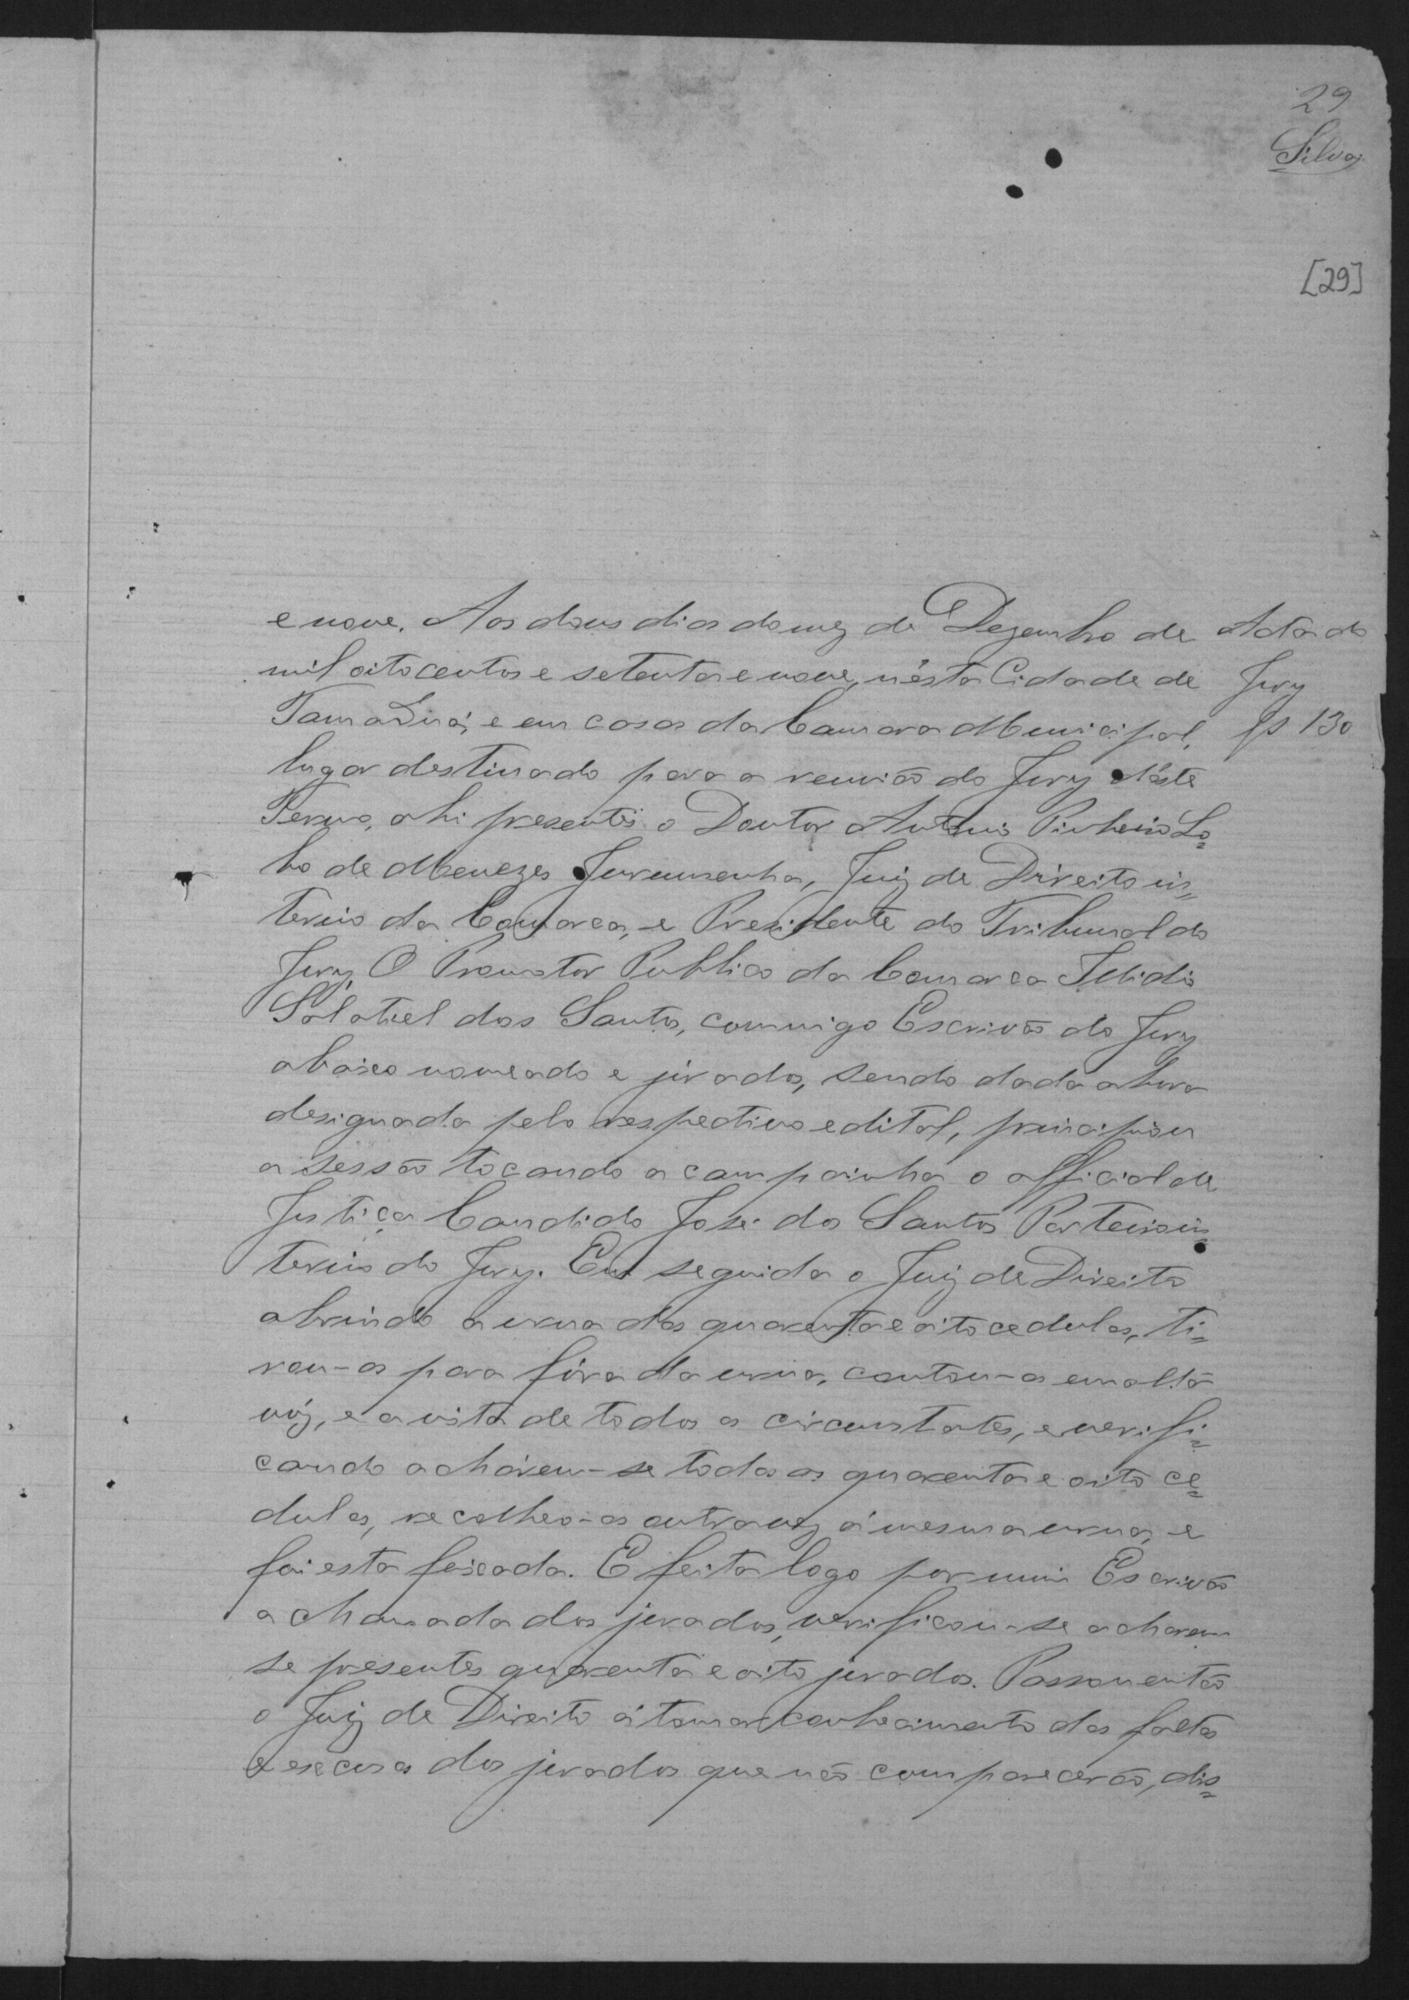 29
Silva
[29]
e nove. Aos dous dias do mez de Dezembro de
mil oito centos e setenta e nove, n'ésta Cidade de
Tamaduá, e em casa da Camara Municipal,
lugar destinado para a reunião do Jury d'éste
Termo, ahi presentes o Doutor Antonio Pinheiro Lo=
bo de Menezes Jurumenha, Juiz de Direito in=
terino da Comarca, e Presidente do Tribunal do
Jury, O Promotor Publico da Comarca
Salatiel dos Santos, commigo Escrivão do Jury
abaixo nomeado e jurados, sendo dada a hora
designada pelo respectivo edital, principiou
a sessão tocando a campainha o official de
Justiça Candido José dos Santos Porteiro in=
terino do Jury. Em seguida o Juiz de Direito
abrindo a urna das quarenta e oito cedulas, ti=
rou-as para fóra da urna, contou-as em alta
vóz, e a vista de todos os circunstantes, e verifi=
cando achárem-se todas as quarenta e oito ce=
dulas, recolheo-as outra vez á mesma urna, e
foi esta feixada. E feita logo por mim Escrivão
a chamada dos jurados, verificou-se acharem
se presentes quarenta e oito jurados. Passou então
o Juiz de Direito á tomar conhecimento das faltas
e escusas dos jurados que não comparecerão, dis=
Acta do
Jury
fs 130